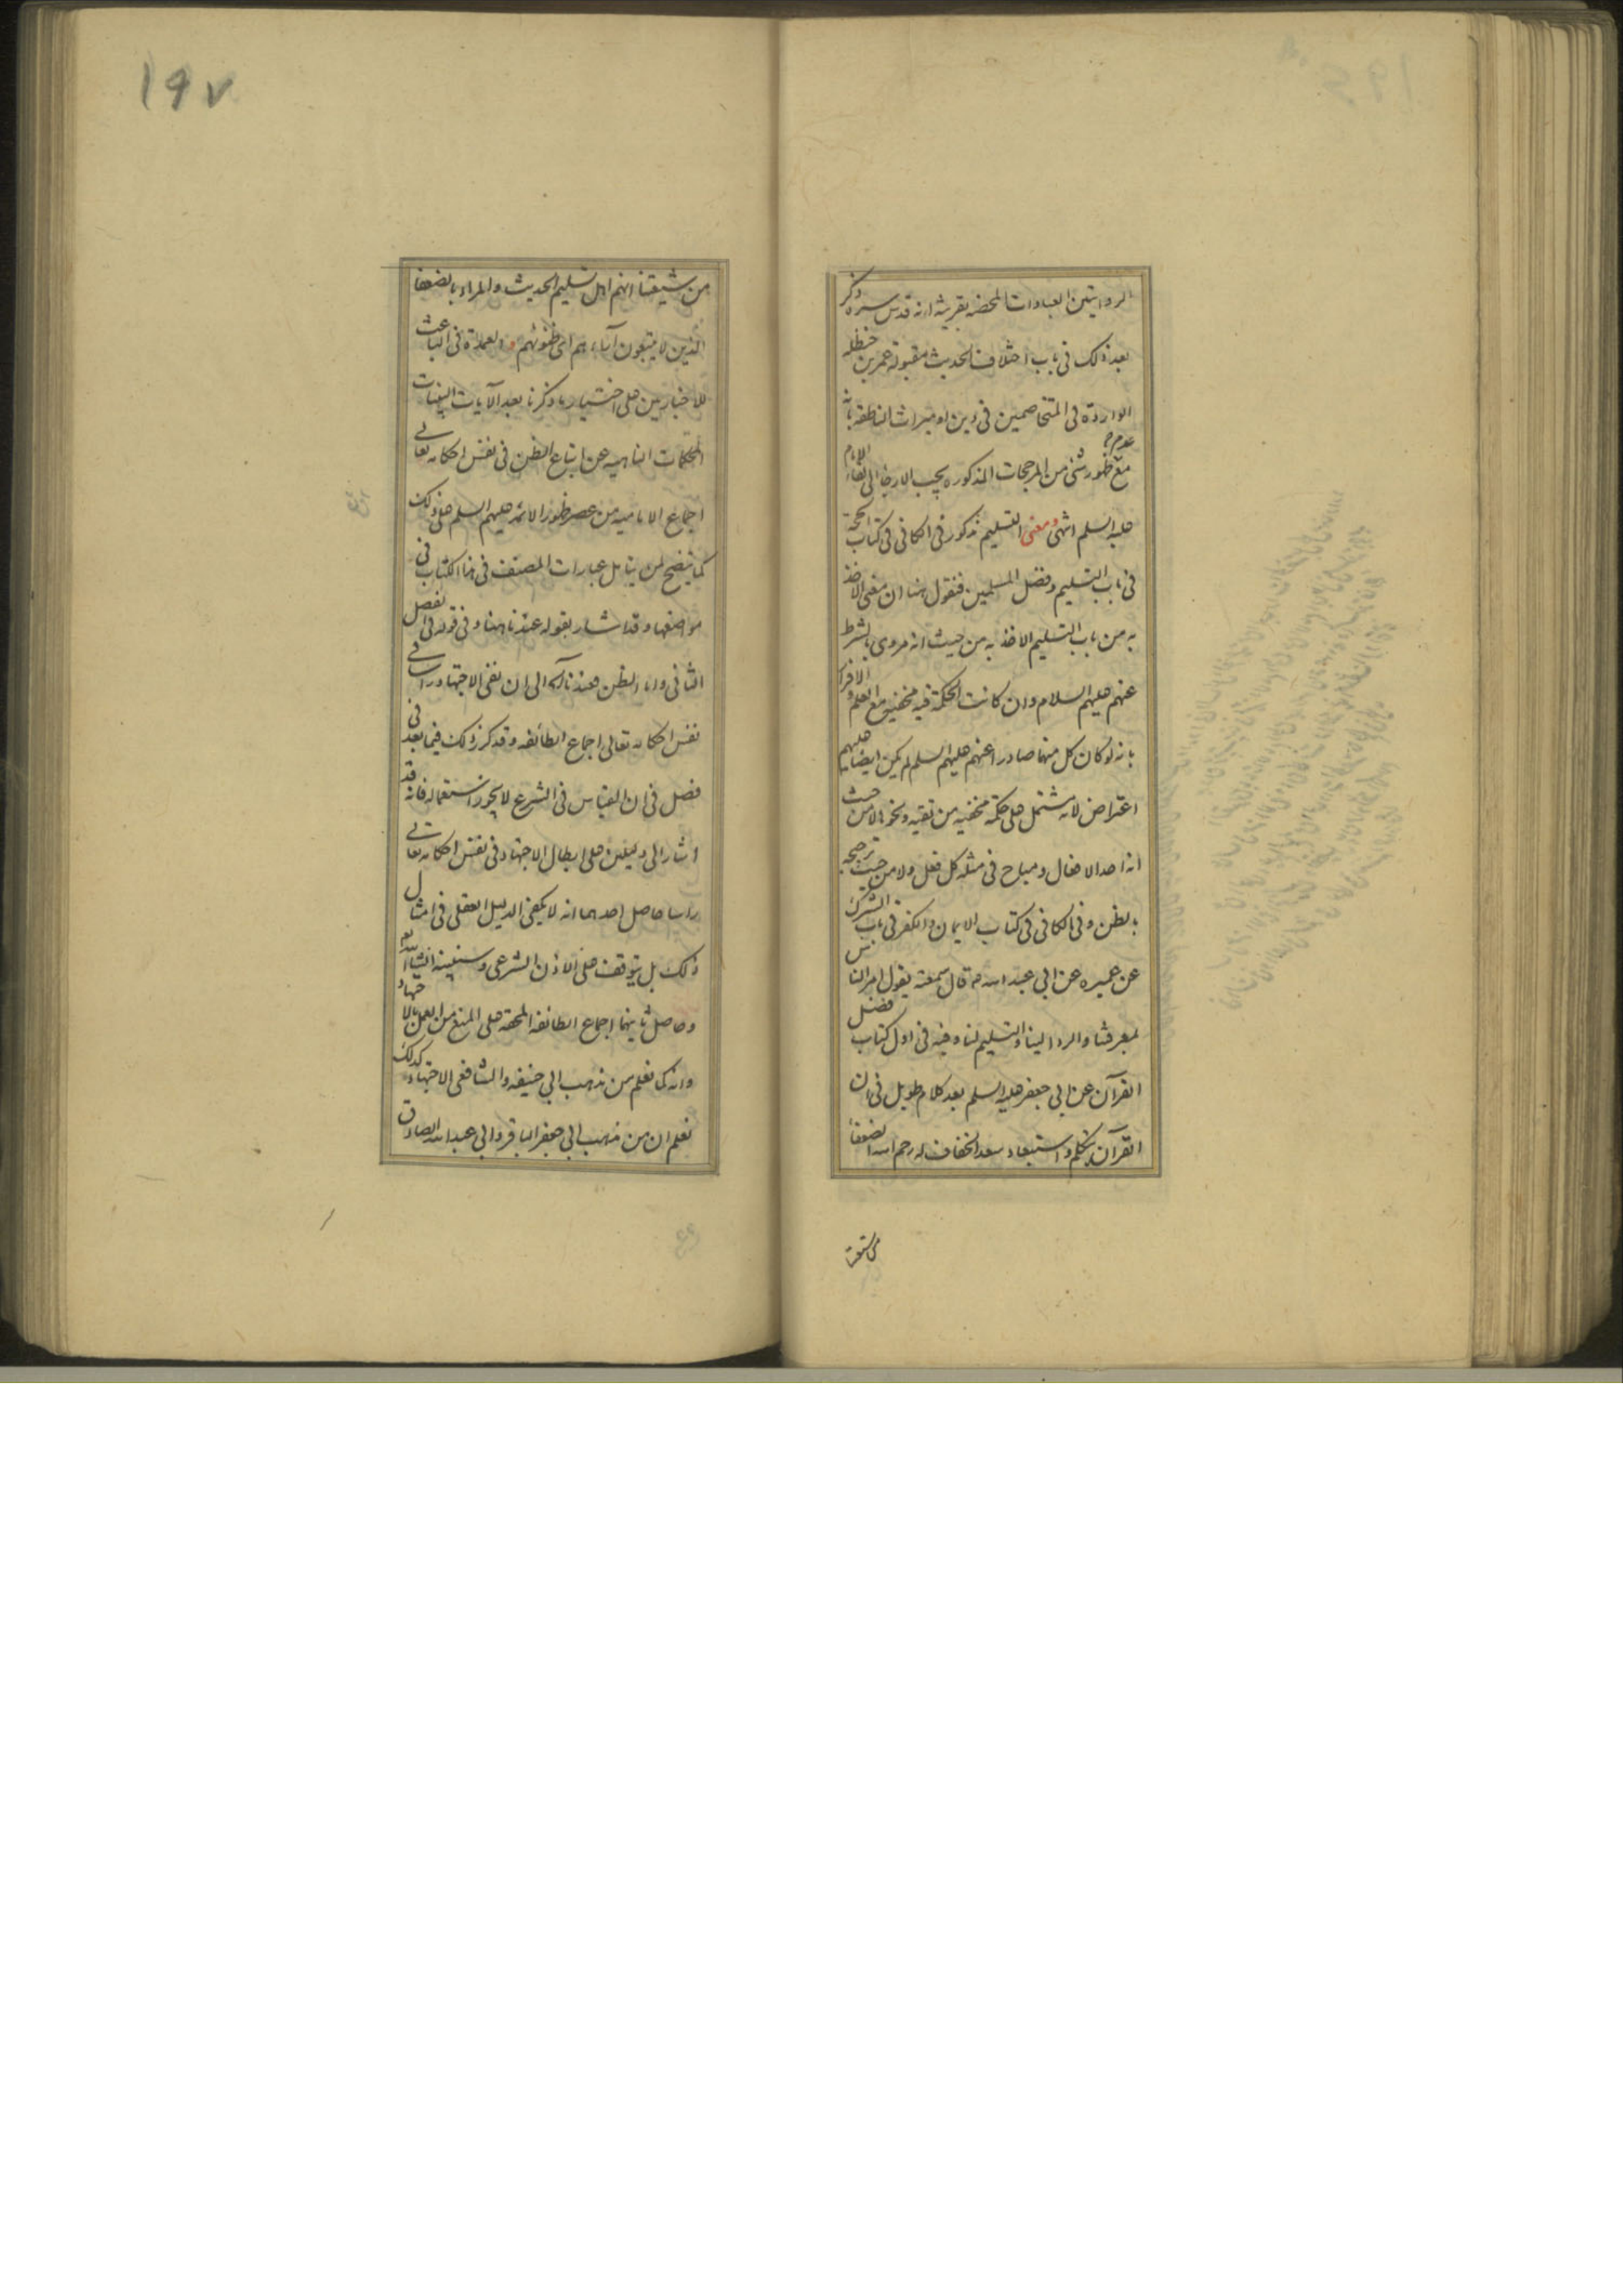 الروايتين العبادات المحضة بقرينة انه قدس سره ذكر
بعد ذلك في باب اختلاف الحديث مقبولة عمر بن حنظله
الواردة في المتخاصمين في دين او ميراث الناطقة بانه
مع عدم ظهور شئ من المرجحات المذكورة يجب الارجاء الى لقاء الامام
عليه السلم انتهى ومعنى التسليم مذكور في الكافي في كتاب الحجة
في باب التسليم وفضل المسلمين فنقول هنا ان معنى الاخذ
به من باب التسليم الاخذ به من حيث انه مروى بالشرط
عنهم عليهم السلام وان كانت الحكمة فيه مع العلم و الاقرار
بانه لو كان كل منهما صادرا عنهم عليهم السلم لم يكن ايضا عليهم
اعتراض لانه مشتمل على حكمة مخفية من تقية ونحوها لا من حيث
انه احد الافعال ومباح في مثله كل فعل ولا من حيث ترجيحه
بالظن وفي الكافي في كتاب الايمان والكفر في باب الشرك
عن عميره عن ابي عبد الله ع قال سمعته يقول امر الناس
لمعرفتنا والرد الينا والتسليم لنا وفيه في اول كتاب فضل
القرآن عن ابي جعفر عليه السلم بعد كلام طويل في ان
القرآن يتكلم واستبعاد سعد الخفاف له رحم الله الضعفا
من شيعتنا
١٩٧
من شيعتنا انهم اهل تسليم الحديث والمراد بالضعفا
الذين لا يتبعون آباءهم اى ظنونهم و العمدة في الباعث
للاخباريين على اختيار ما ذكرنا بعد الآيات البينات
المحكمات الناهيه عن اتباع الظن في نفس احكامه تعالى
اجماع الاماميه من عصر ظهور الائمه عليهم السلم على ذلك
كما يتضح لمن يتامل عبارات المصنف في هذا الكتاب في
مواضعها وقد اشار بقوله عندنا هنا و في قوله في الفصل
الثاني واما الظن فعندنا آه الى ان نفى الاجتهاد راسا في
نفس احكامه تعالى اجماع الطائفه وقد ذكر ذلك فيما بعد في
فصل في ان القياس في الشرع لا يجوز استعماله فانه قد
اشار الى دليلين على ابطال الاجتهاد في نفس احكامه تعالى
راسا حاصل احدهما انه لا يكفى الدليل العقلى في امثال
ذلك بل يتوقف على الاذن الشرعى وسنبينه انشاء الله تعم
وحاصل ثانيهما اجماع الطائفه المحقة على المنع من العمل بالاجتهاد
وانه كما نعلم من مذهب ابي حنيفه والشافعى الاجتهاد كذلك
نعلم ان من مذهب ابي جعفر الباقر وابي عبد الله الصادق